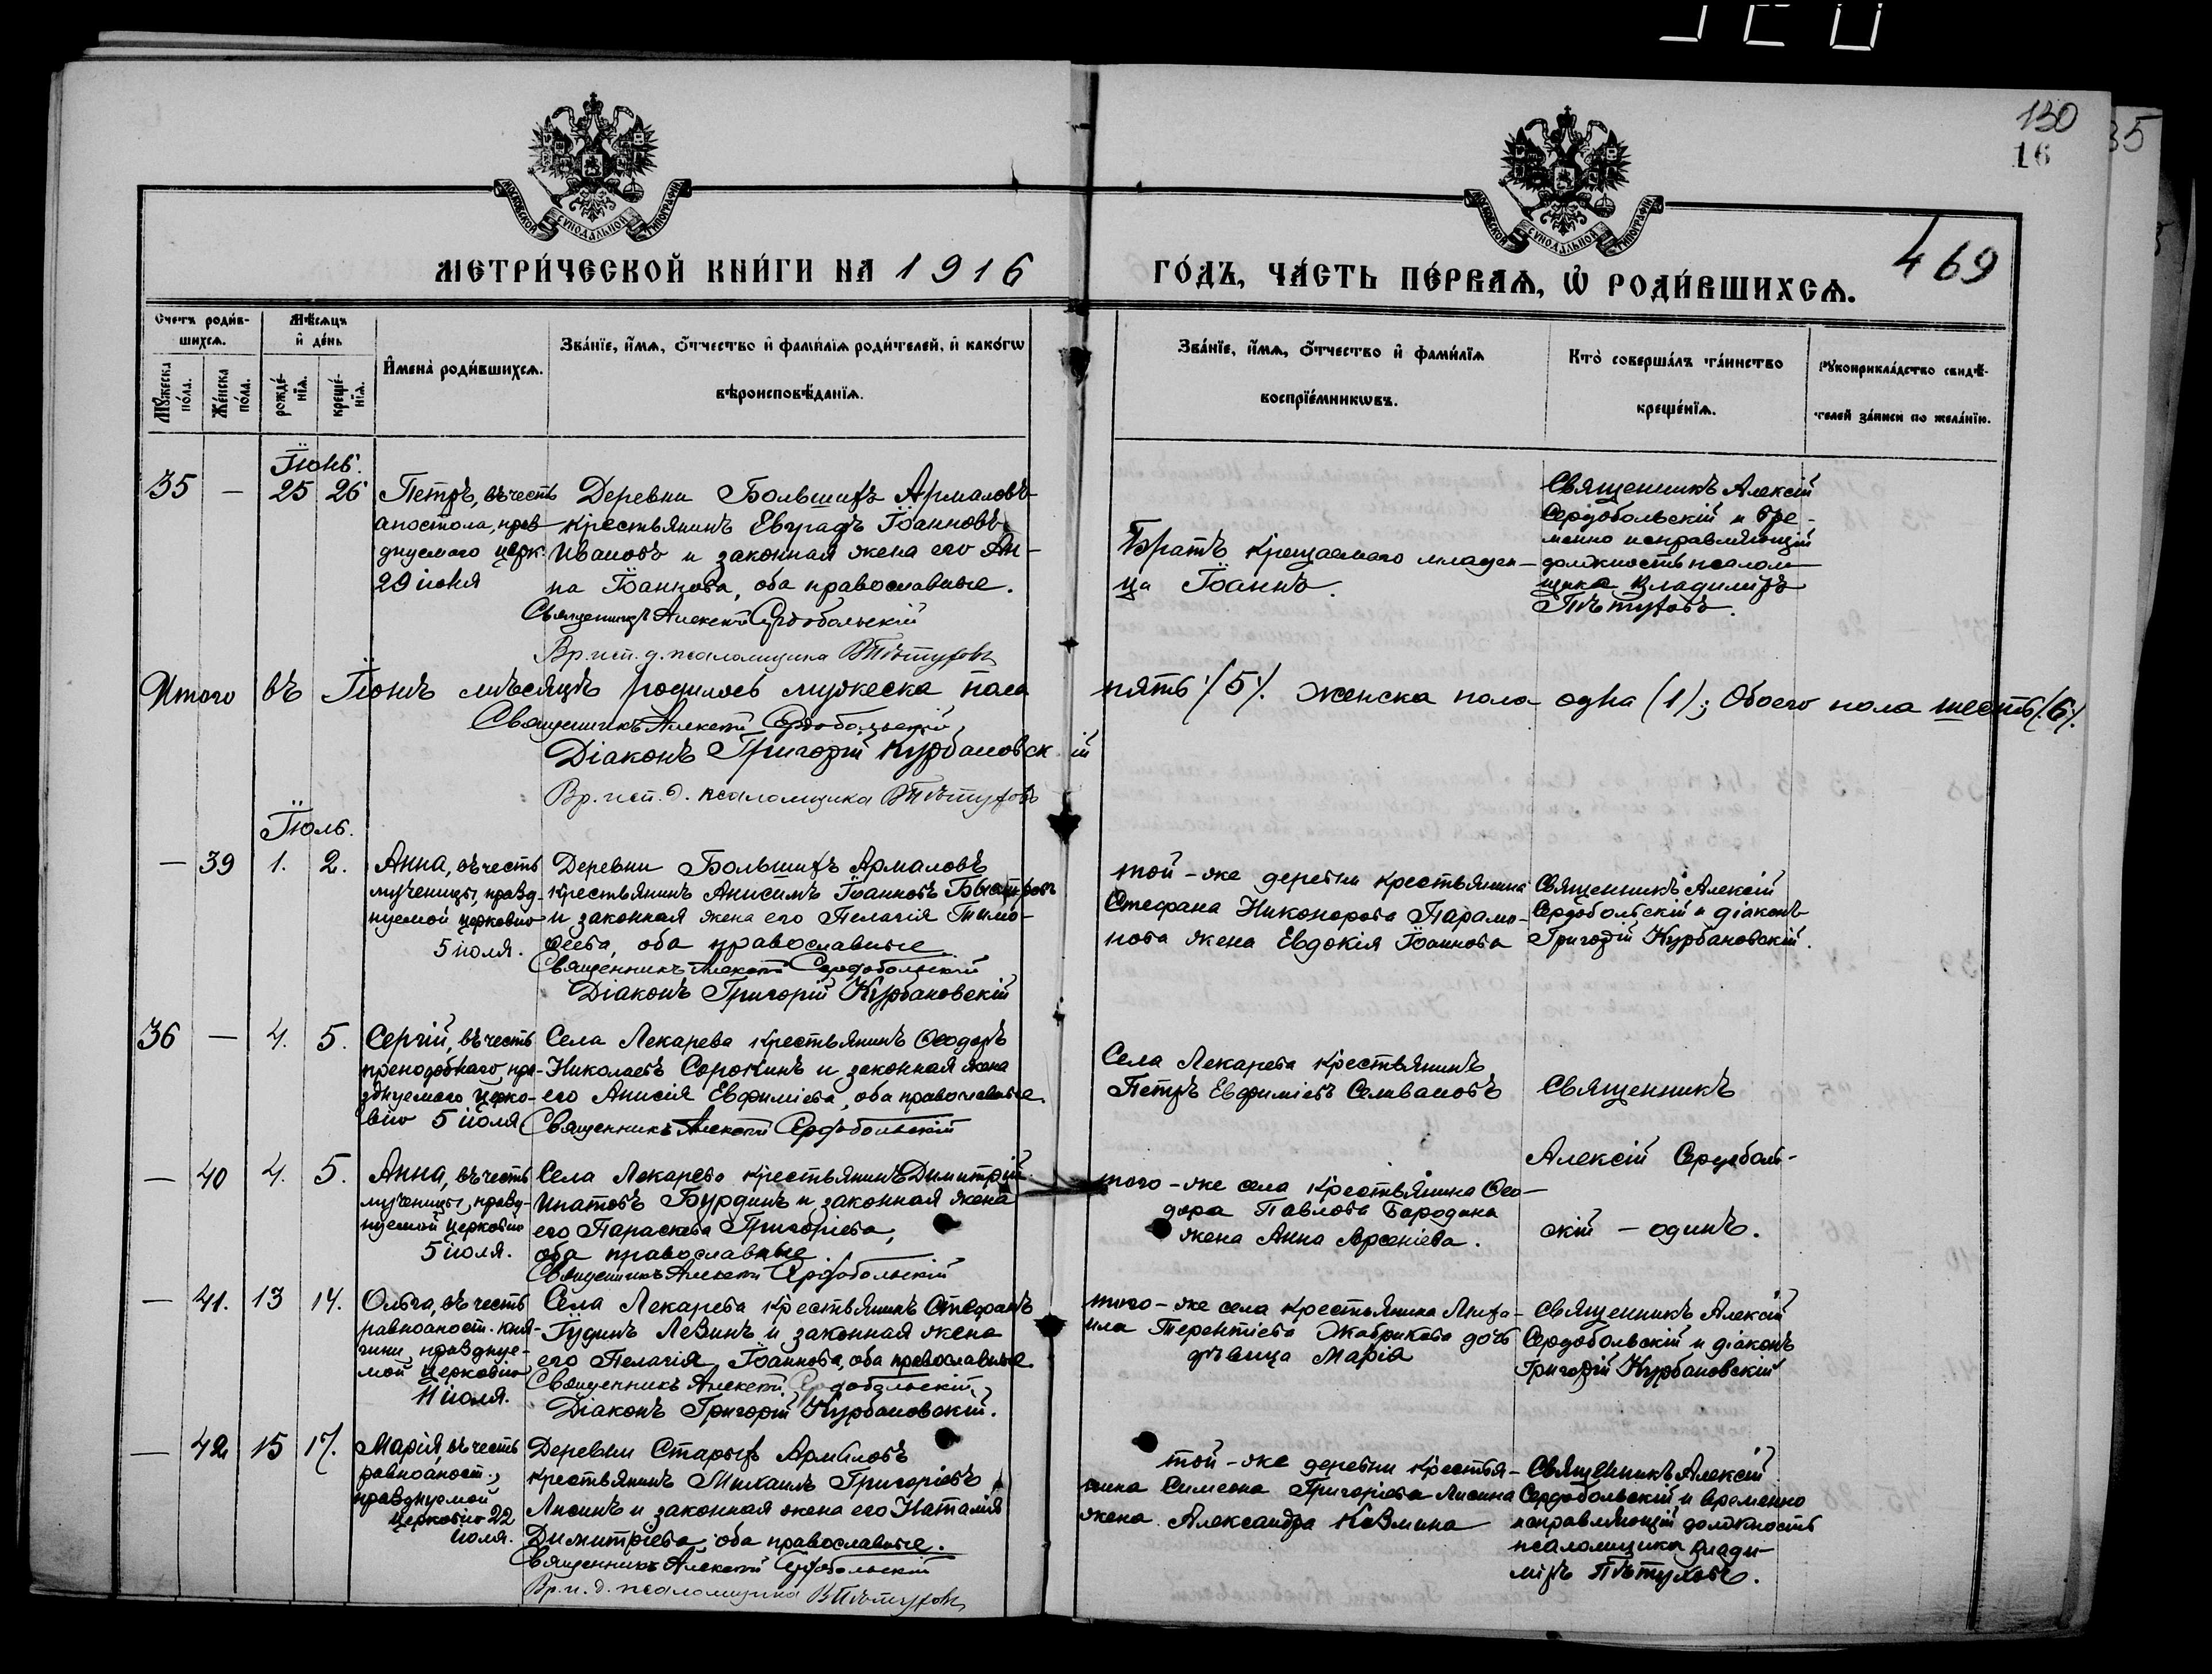 130
16
35
МОСКОВСКОЙ СѴНОДАЛЬНОЙ ТИПОГРАФІИ
МОСКОВСКОЙ СѴНОДАЛЬНОЙ ТИПОГРАФІИ
МЕТРИ́ЧЕСКОЙ КНИ́ГИ НА 1916
ГО́ДЪ, ЧА́СТЬ ПЕ́РВАѦ, Ѡ҆ РОДИ́ВШИХСѦ.
469
Счетъ роди́вшихсѧ.
Мꙋ́жеска по́ла.
Же́нска по́ла.
Мѣ́сѧцъ и҆ де́нь
рожде́нїѧ.
креще́нїѧ.
И҆мена̀ роди́вшихсѧ.
Зва́нїе, и҆́мѧ, ѻ҆́тчество и҆ фами́лїѧ роди́телей, и҆ како́гѡ
вѣроисповѣ́данїѧ.
Зва́нїе, и҆́мѧ, ѻ҆́тчество и҆ фами́лїѧ
воспрїе́мникѡвъ.
Кто̀ соверша́лъ та́инство
креще́нїѧ.
Рꙋкоприкла́дство свидѣ́-
телей за́писи по жела́нїю.
Іюнь.
35 — 25 26
Петръ, въ честь
апостола, праз-
днуемаго церк.
29 іюня
Деревни Большихъ Армаловъ
крестьянинъ Евградъ Іоанновъ
Ивановъ и законная жена его Ан-
на Іоаннова, оба православные.
Священникъ Алексій Сердобольскій
Вр. исп. д. псаломщика В Пѣтуховъ
Братъ крещаемаго младен-
ца Іоаннъ.
Священникъ Алексій
Сердобольскій и вре-
менно исправляющій
должность псалом-
щика Владиміръ
Пѣтуховъ.
Итого въ Іюнѣ мѣсяцѣ родилось мужеска пола пять /5/. Женска пола одна (1); Обоего пола шесть /6/.
Священникъ Алексій Сердобольскій
Діаконъ Григорій Курбановскій
Вр. исп. д. псаломщика В Пѣтуховъ
Іюль.
— 39 1. 2.
Анна, въ честь
мученицы, празд-
нуемой церковію
5 іюля.
Деревни Большихъ Армаловъ
крестьянинъ Анисимъ Іоанновъ Быстровъ
и законная жена его Пелагія Тимо-
ѳеева, оба православные
Священникъ Алексій Сердобольскій
Діаконъ Григорій Курбановскій
той-же деревни крестьянина
Стефана Никонорова Парамо-
нова жена Евдокія Іоаннова
Священникъ Алексій
Сердобольскій и діаконъ
Григорій Курбановскій.
36 — 4. 5.
Сергій, въ честь
преподобнаго, пра-
зднуемаго церко-
вію 5 іюля
Села Лекарева крестьянинъ Ѳеодоръ
Николаевъ Сорокинъ и законная жена
его Анисія Евфиміева, оба православные.
Священникъ Алексій Сердобольскій
Села Лекарева крестьянинъ
Петръ Евфиміевъ Селивановъ
Священникъ
— 40 4. 5.
Анна, въ честь
мученицы, празд-
нуемой церковію
5 іюля.
Села Лекарево крестьянинъ Димитрій
Ипатовъ Бурдинъ и законная жена
его Параскева Григоріева,
оба православные.
Священникъ Алексій Сердобольскій
того-же села крестьянина Ѳео-
дора Павлова Бородина
жена Анна Арсеніева.
Алексій Сердоболь-
скій — одинъ.
— 41. 13 14.
Ольга, въ честь
равноапост. кня-
гини, празднуе-
мой церковію
11 іюля.
Села Лекарева крестьянинъ Стефанъ
Гудинъ Левинъ и законная жена
его Пелагія Іоаннова, оба православные.
Священникъ Алексій Сердобольскій
Діаконъ Григорій Курбановскій.
того-же села крестьянина Миха-
ила Терентіева Жабрикова дочь
дѣвица Марія
Священникъ Алексій
Сердобольскій и діаконъ
Григорій Курбановскій
— 42 15 17.
Марія, въ честь
равноапост.,
празднуемой
церковію 22
іюля.
Деревни Старыхъ Армаловъ
крестьянинъ Михаилъ Григоріевъ
Лисинъ и законная жена его Наталія
Димитріева, оба православные.
Священникъ Алексій Сердобольскій
Вр. и. д. псаломщика В Пѣтуховъ
той-же деревни крестья-
нина Симеона Григоріева Лисина
жена Александра Козмина
Священникъ Алексій
Сердобольскій и временно
исправляющій должность
псаломщика Влади-
міръ Пѣтуховъ.